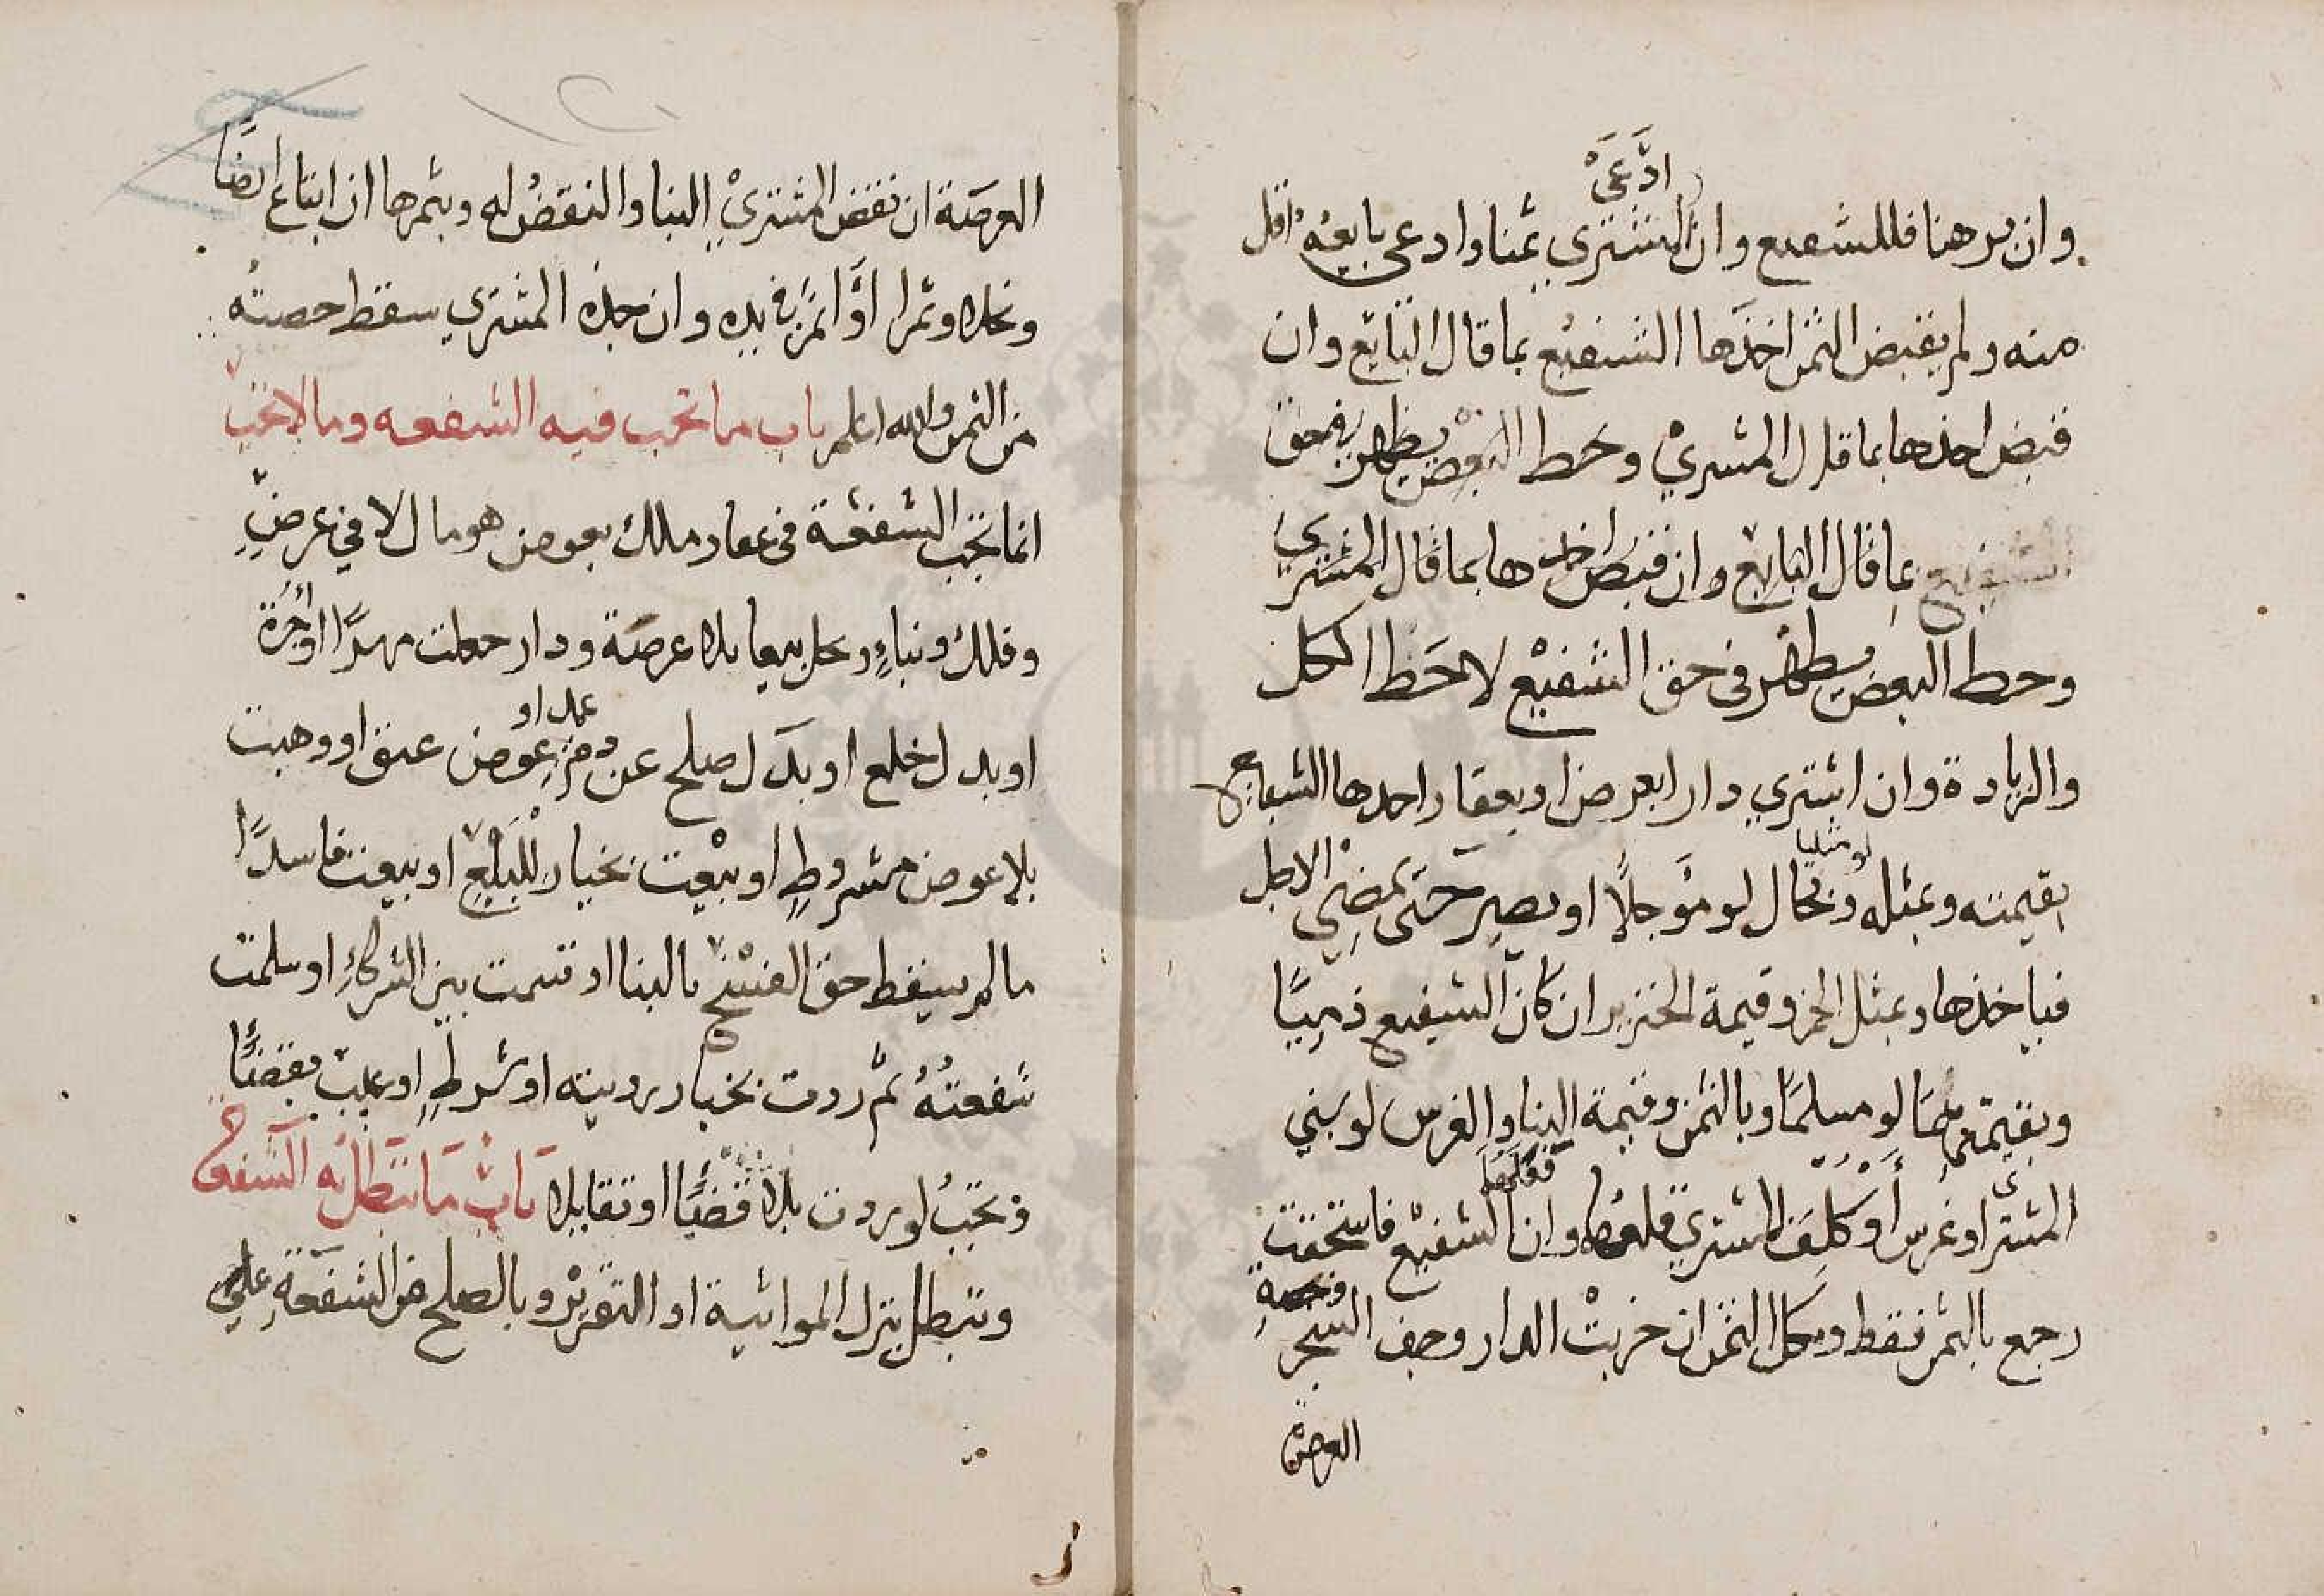 وان برهنا فللشفيع وان ادعى المشتري ثمنا وادعى بايعه اقل
منه ولم يقبض الثمن اخذها الشفيع بما قال البايع وان
قبض اخذها بما قال المشتري وحط البعض يظهر في حق
الشفيع بما قال البايع وان قبض اخذها بما قال المشتري
وحط البعض يظهر في حق الشفيع لا حط الكل
والزيادة وان اشترى دارا بعرض او بعقار اخذها الشفيع
بقيمته وبمثله لو مثليا وبحال لو مؤجلا او يصبر حتى يمضي الاجل
فياخذها وبمثل الخمر وقيمة الخنزير ان كان الشفيع ذميا
وبقيمتهما لو مسلما وبالثمن وقيمة البنا والغرس لو بنى
المشتري او غرس او كلف المشتري قلعهما وان قلعهما الشفيع فاستحقت
رجع بالثمن فقط وبكل الثمن ان خربت الدار وجف الشجر وبحصة
العرصة
العرصة ان نقض المشتري البنا والنقض له وبثمرها ان ابتاع ارضا
ونخلا وثمرا او اثمر في يده وان جذه المشتري سقط حصته
من الثمن والله اعلم باب ما تجب فيه الشفعه وما لا تجب
انما تجب الشفعة في عقار ملك بعوض هو مال لا في عرض
وفلك وبناء ونخل بيعا بلا عرصة ودار جعلت مهرا او اجرة
او بدل خلع او بدل صلح عن دم عمد او عوض عتق او وهبت
بلا عوض مشروط او بيعت بخيار للبايع او بيعت فاسدا
ما لم يسقط حق الفسخ بالبنا او قسمت بين الشركاء او سلمت
شفعته ثم ردت بخيار روية او شرط او عيب بقضا
وتجب لو ردت بلا قضا او تقايلا باب ما تبطل به الشفعة
وتبطل بترك المواثبة او التقرير وبالصلح من الشفعة على